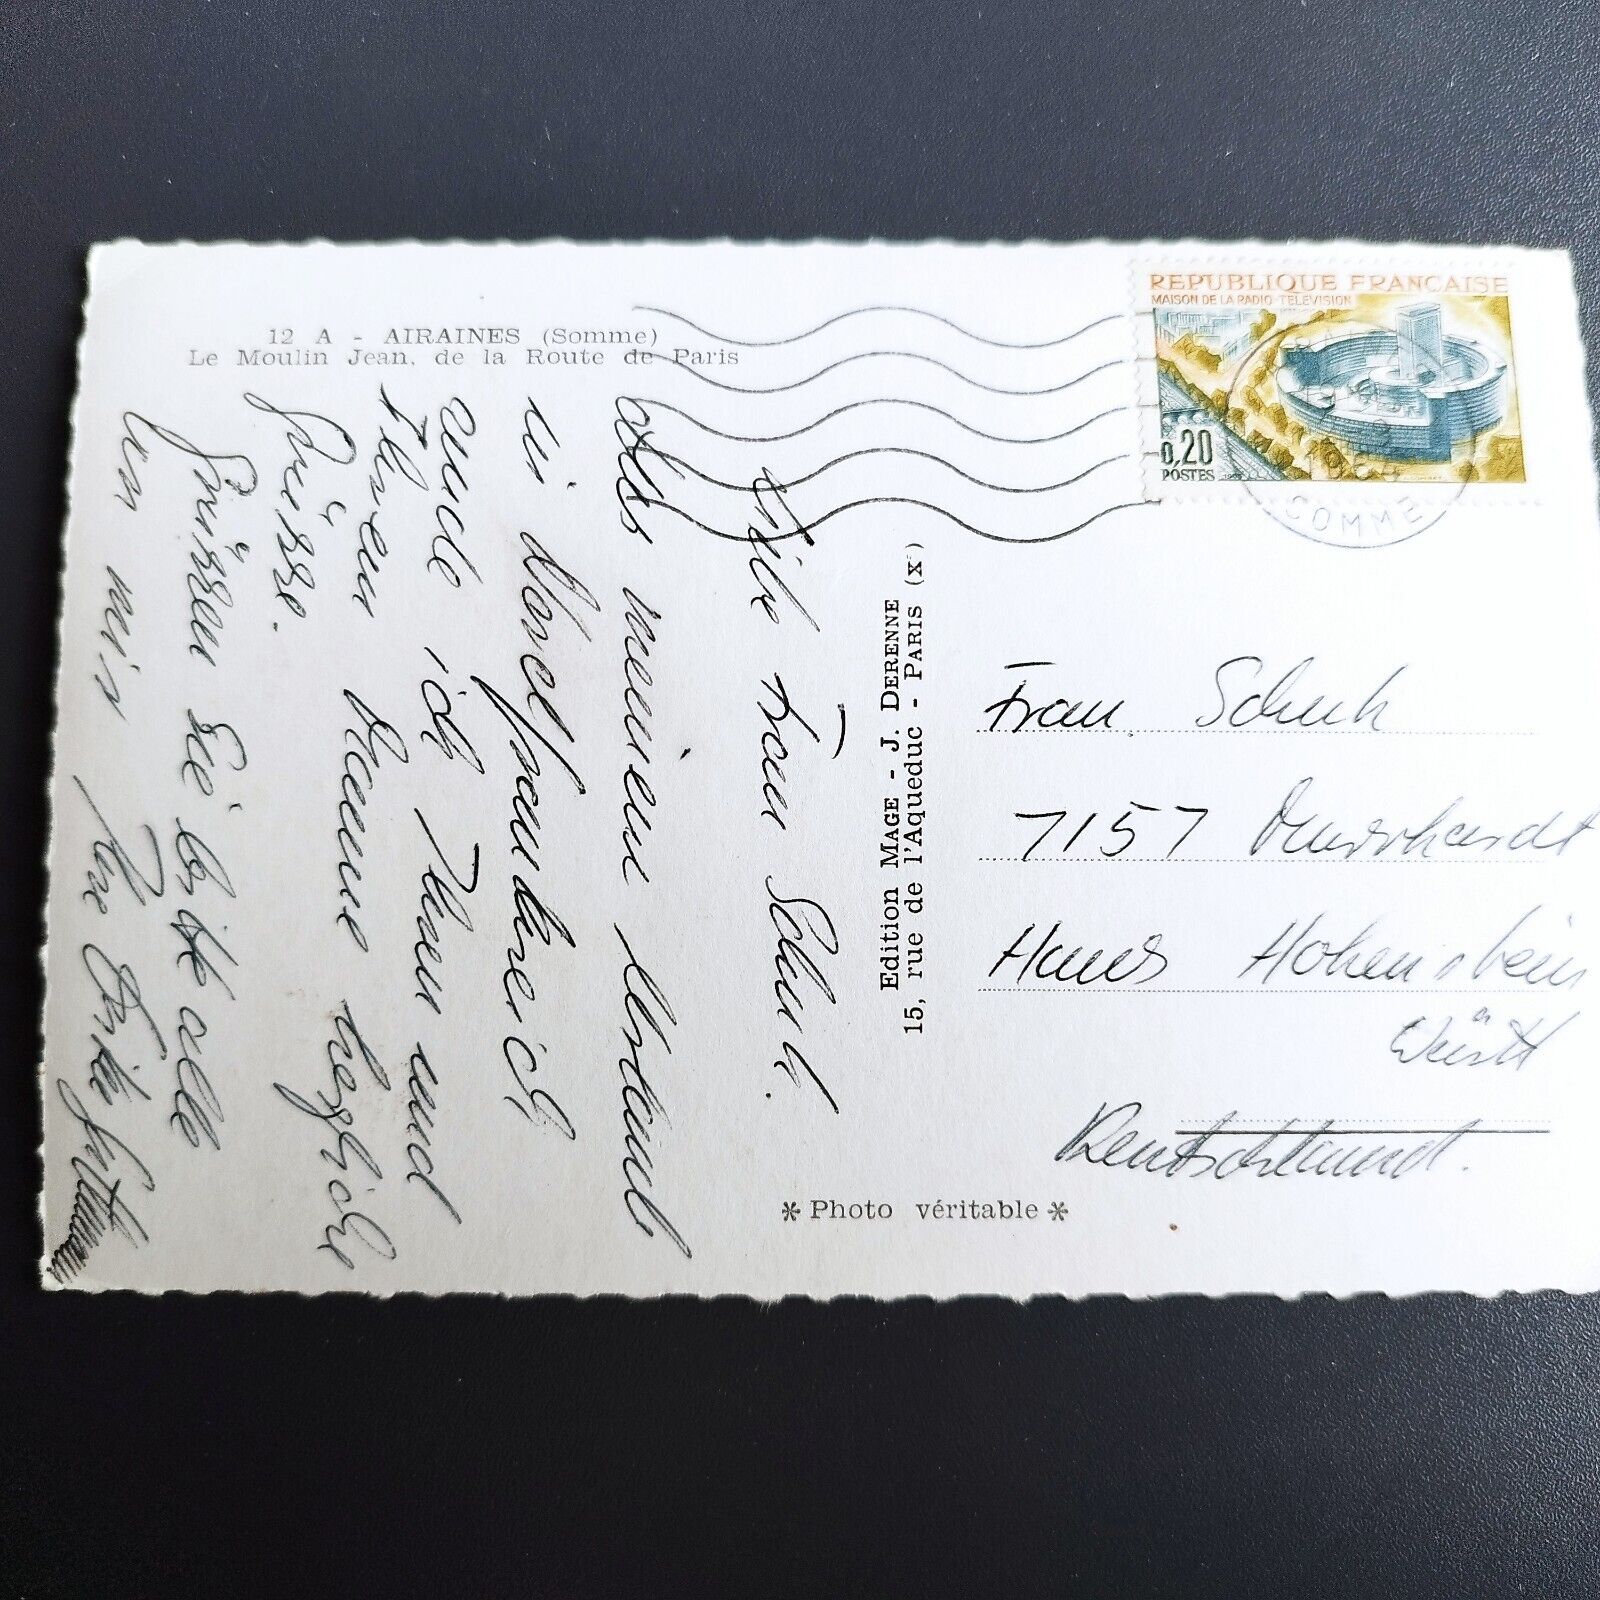 12 A - AIRAINES (Somme)
Le Moulin Jean, de la Route de Paris
REPUBLIQUE FRANÇAISE
MAISON DE LA RADIO-TELEVISION
0,20
POSTES
SOMME
Edition MAGE - J. DERENNE
15, rue de l'Aqueduc - PARIS (X)
Frau Schuh
7157 Murrhardt
Haus Hohenstein
Württ
Deutschland.
* Photo véritable *
Liebe Frau Schuh.
Aus meinem Urlaub
in Nordfrankreich
sende ich Ihnen und
Ihren Damen herzliche
Grüsse.
Grüssen Sie bitte alle
von mir Ihre